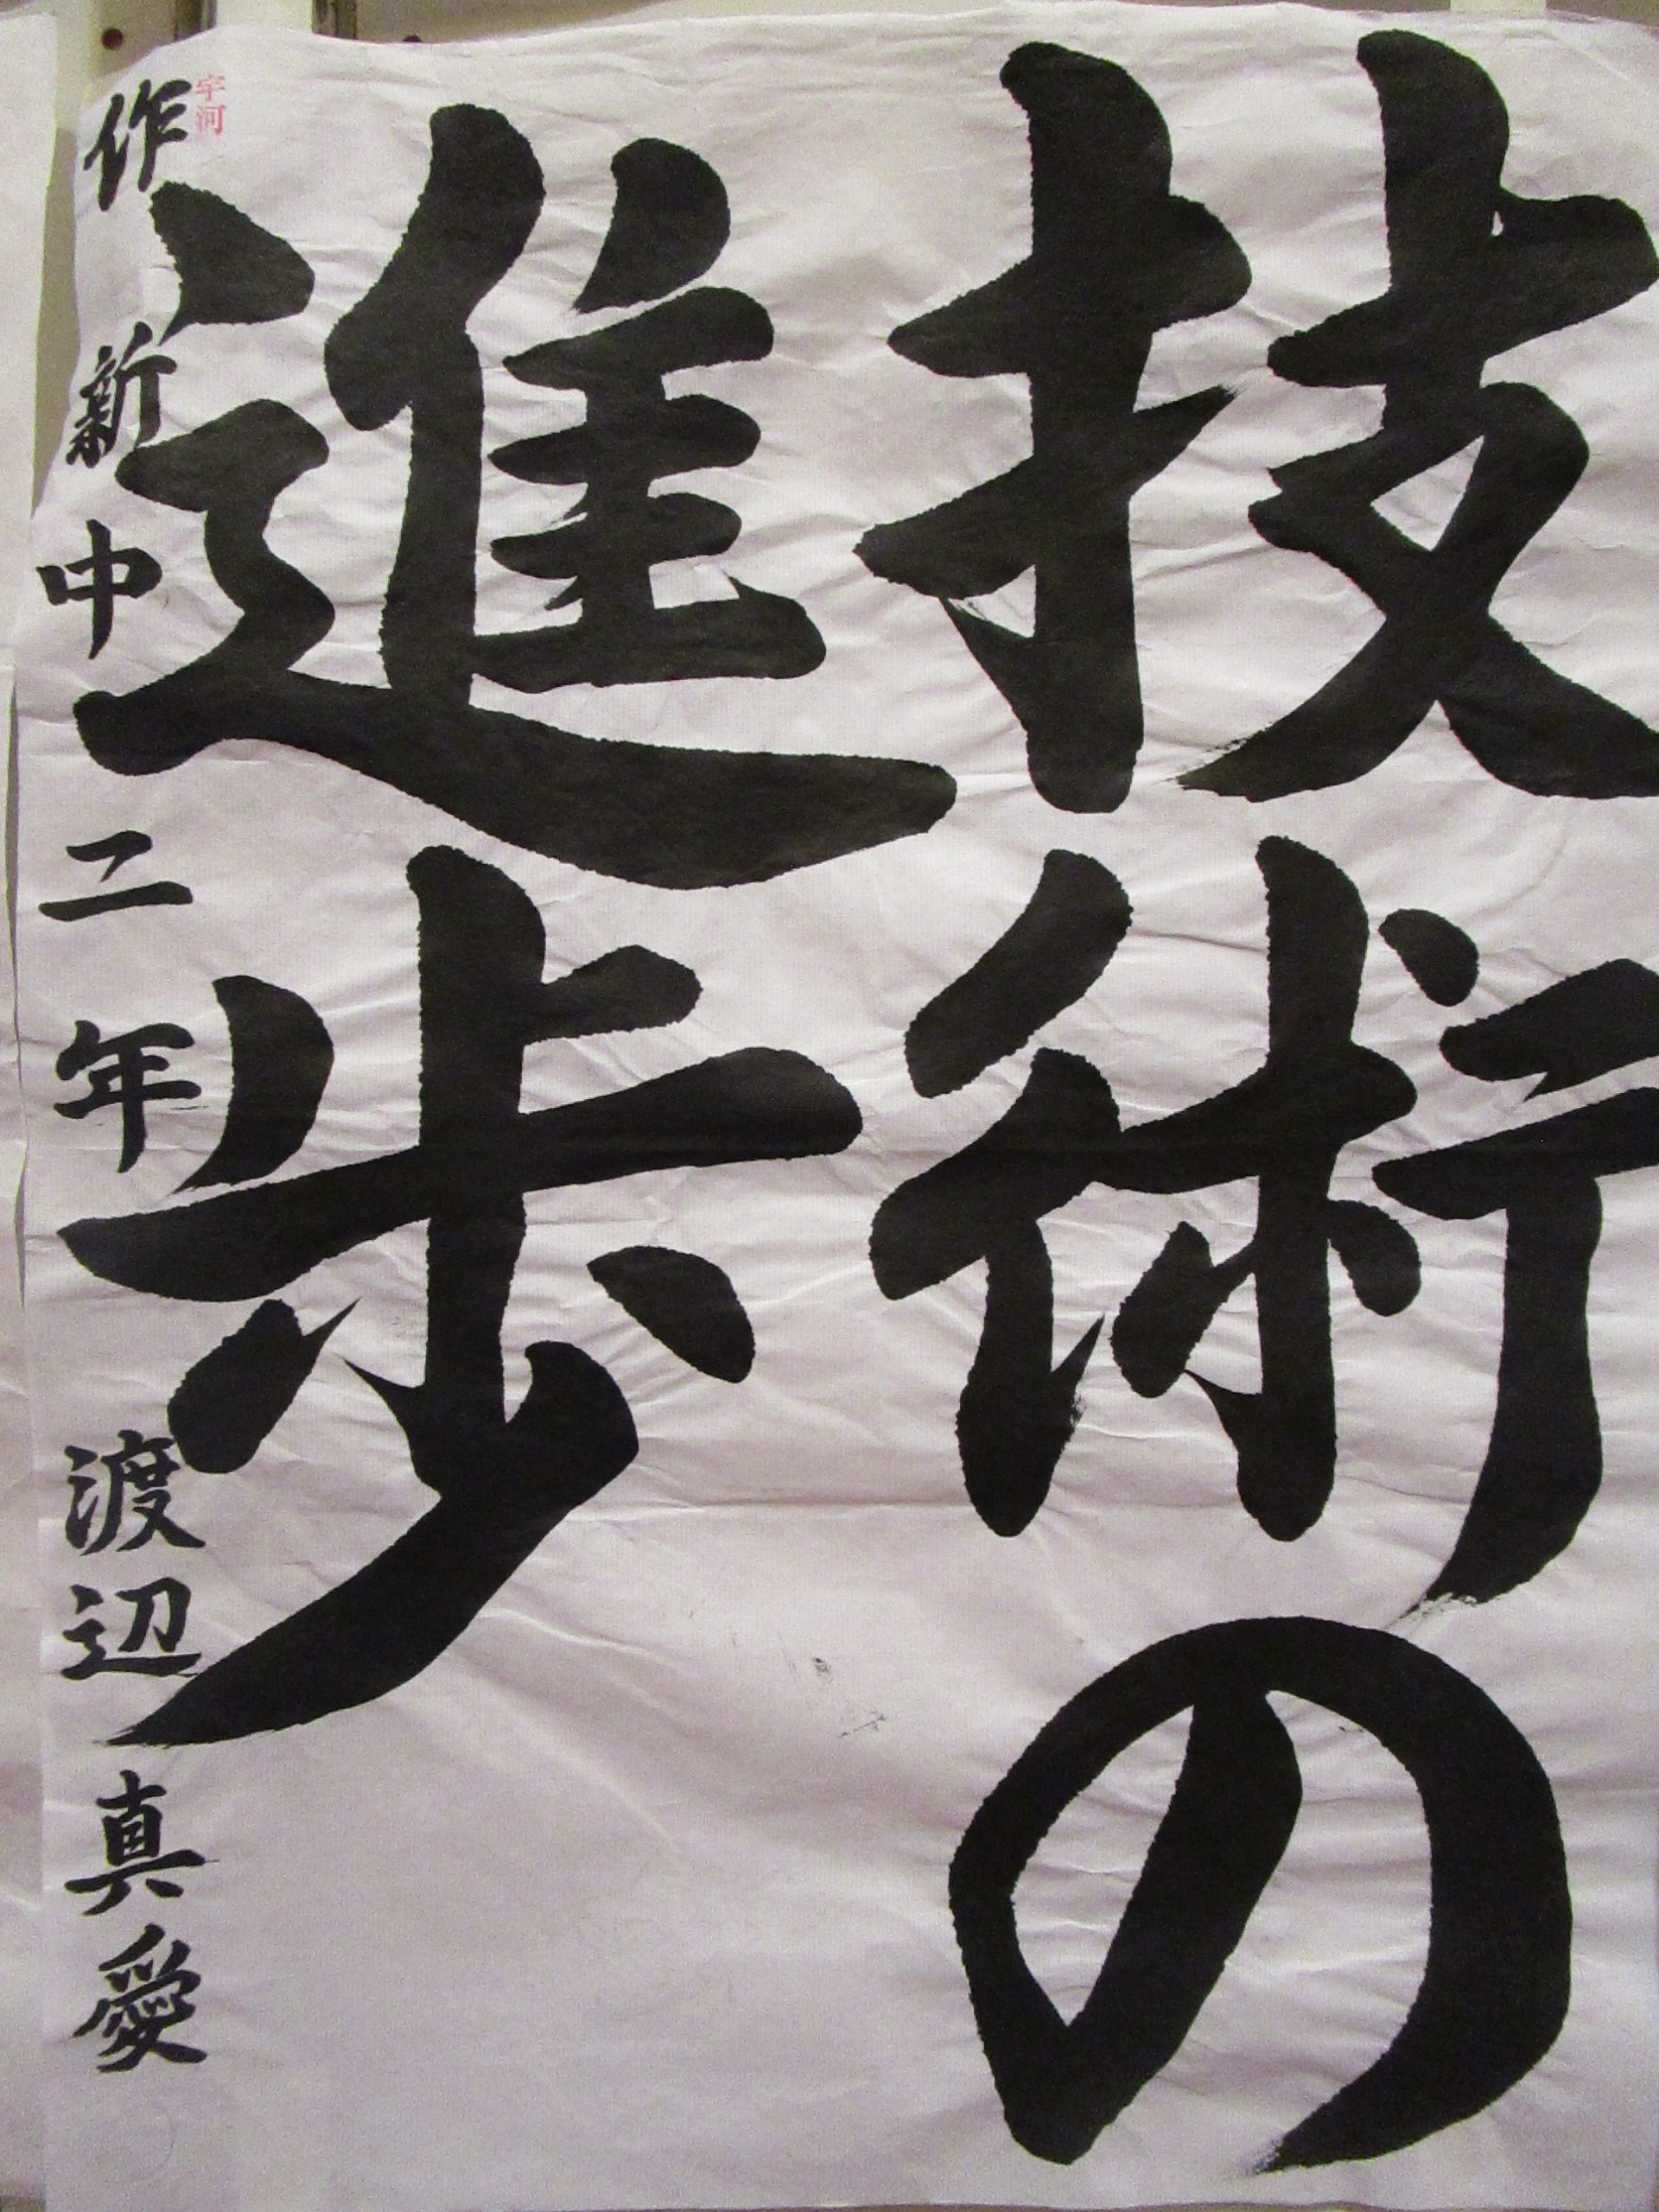 技術の
進歩
作新中二年 渡辺真愛
宇河